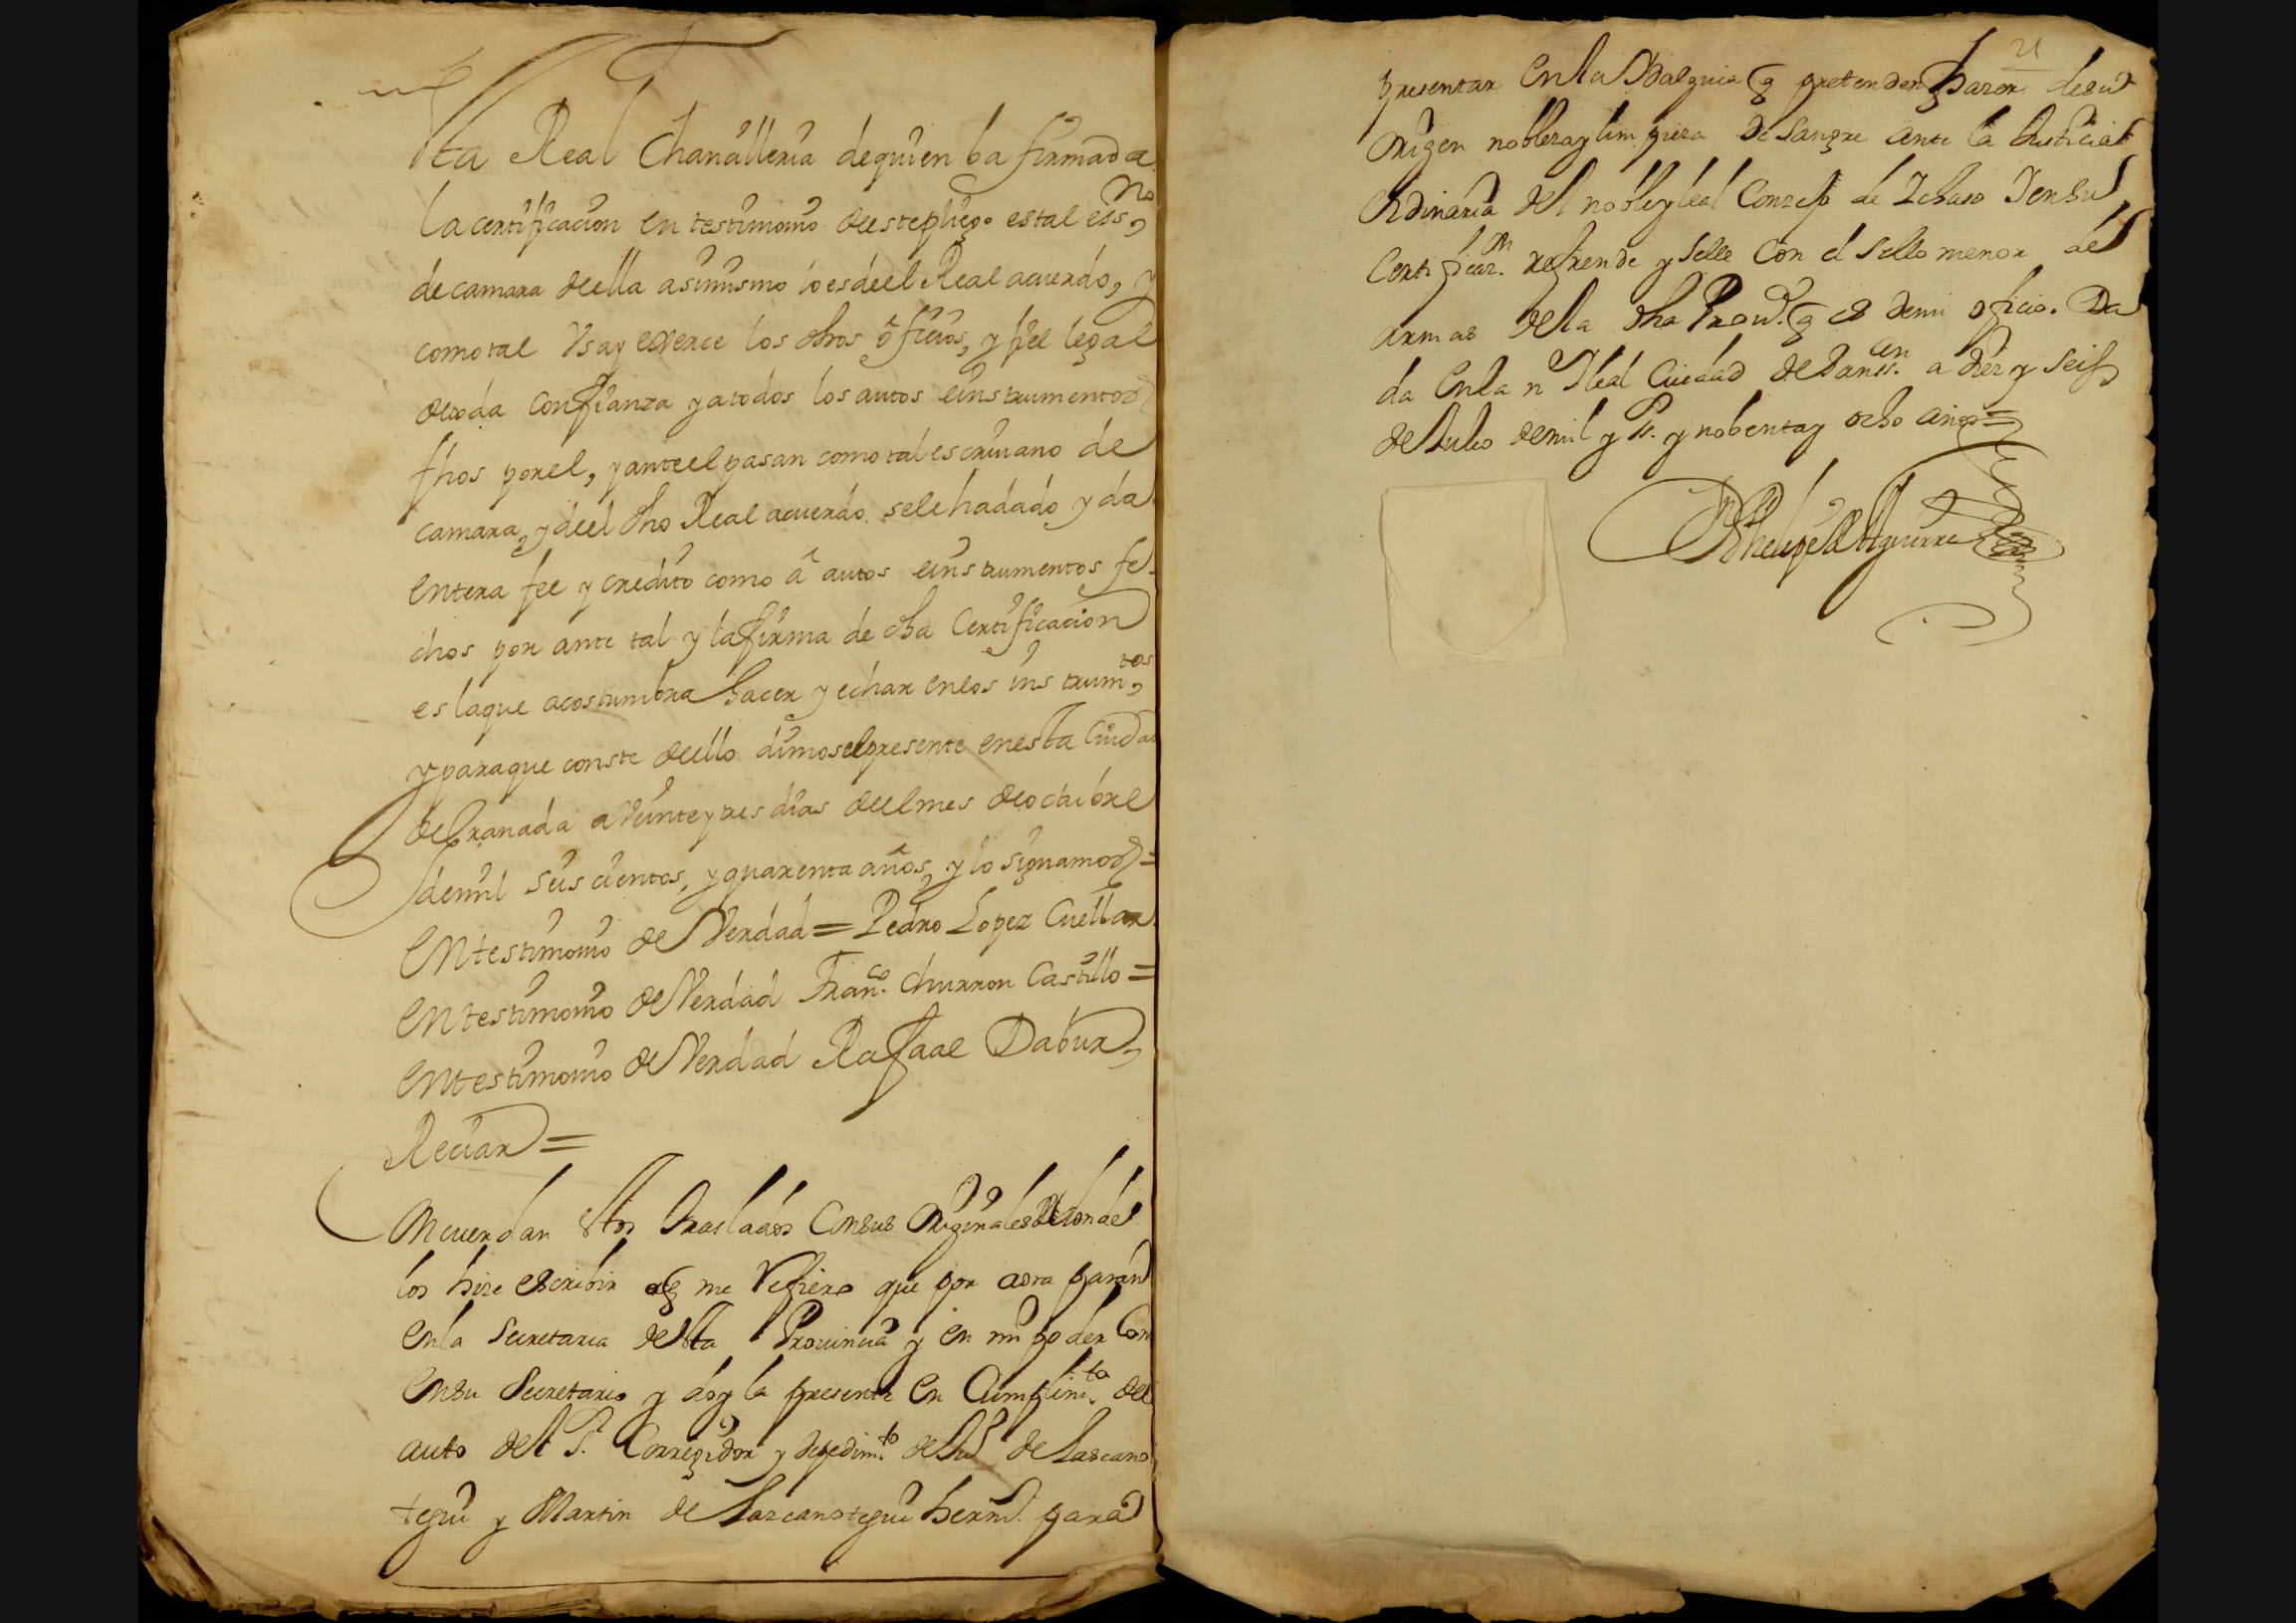 sta Real Chanalleria de quien ba firmada
la certificacion en testimonio deeste pliego es tal essno,
de camara deella asimismo lo es deel Real acuerdo, y
como tal Vsa y exerce los dhos oficios, y fiel legal
de toda confianza y a todos los autos e instrumentos
fhos por el, y ante el pasan como tal escriuano de
camara, y deel dho Real acuerdo se le ha dado y da
entera fee y credito como â autos e instrumentos fe-
chos por ante tal y la firma de dha Certificacion
es la que acostumbra hacer y echar en los instrumtos,
y para que conste deello dimos el presente en esta Ciudad
de Granada a Veinte y tres dias deel mes de octubre
de mil seis cientos, y quarenta años, y lo signamos =
En testimonio de Verdad = Pedro Lopez Cuellar
En testimonio de Verdad Franco. Churron Castillo =
En testimonio de Verdad Rafael Dabur,
Recian =
Acuerdan estos traslados con sus originales de donde
los hize escribir a q me refiero que por aora paran
en la Secretaria de esta Prouincia y en mi poder Con
en su Secretario y doy la presente en Cumplimto. del
auto del Sr. Corregidor y de pedimto de de Lascano
tegui y Martin de Lazcanotegui hermos. para
21
presentar en la Ydalguia q pretenden hazer de su
origen nobleza y limpieza de Sangre ante la Justicia
Ordinaria del noble y leal Conzejo de Ichaso Y en su
Certificazn. refrende y selle con el sello menor de
armas de la dha Prova. q es de mi oficio. Da
da en la n. y leal Ciudad de San ssen. a diez y seis
de Julio de mil y ss. y nobenta y ocho años =
Dn Phelipe de Aguirre